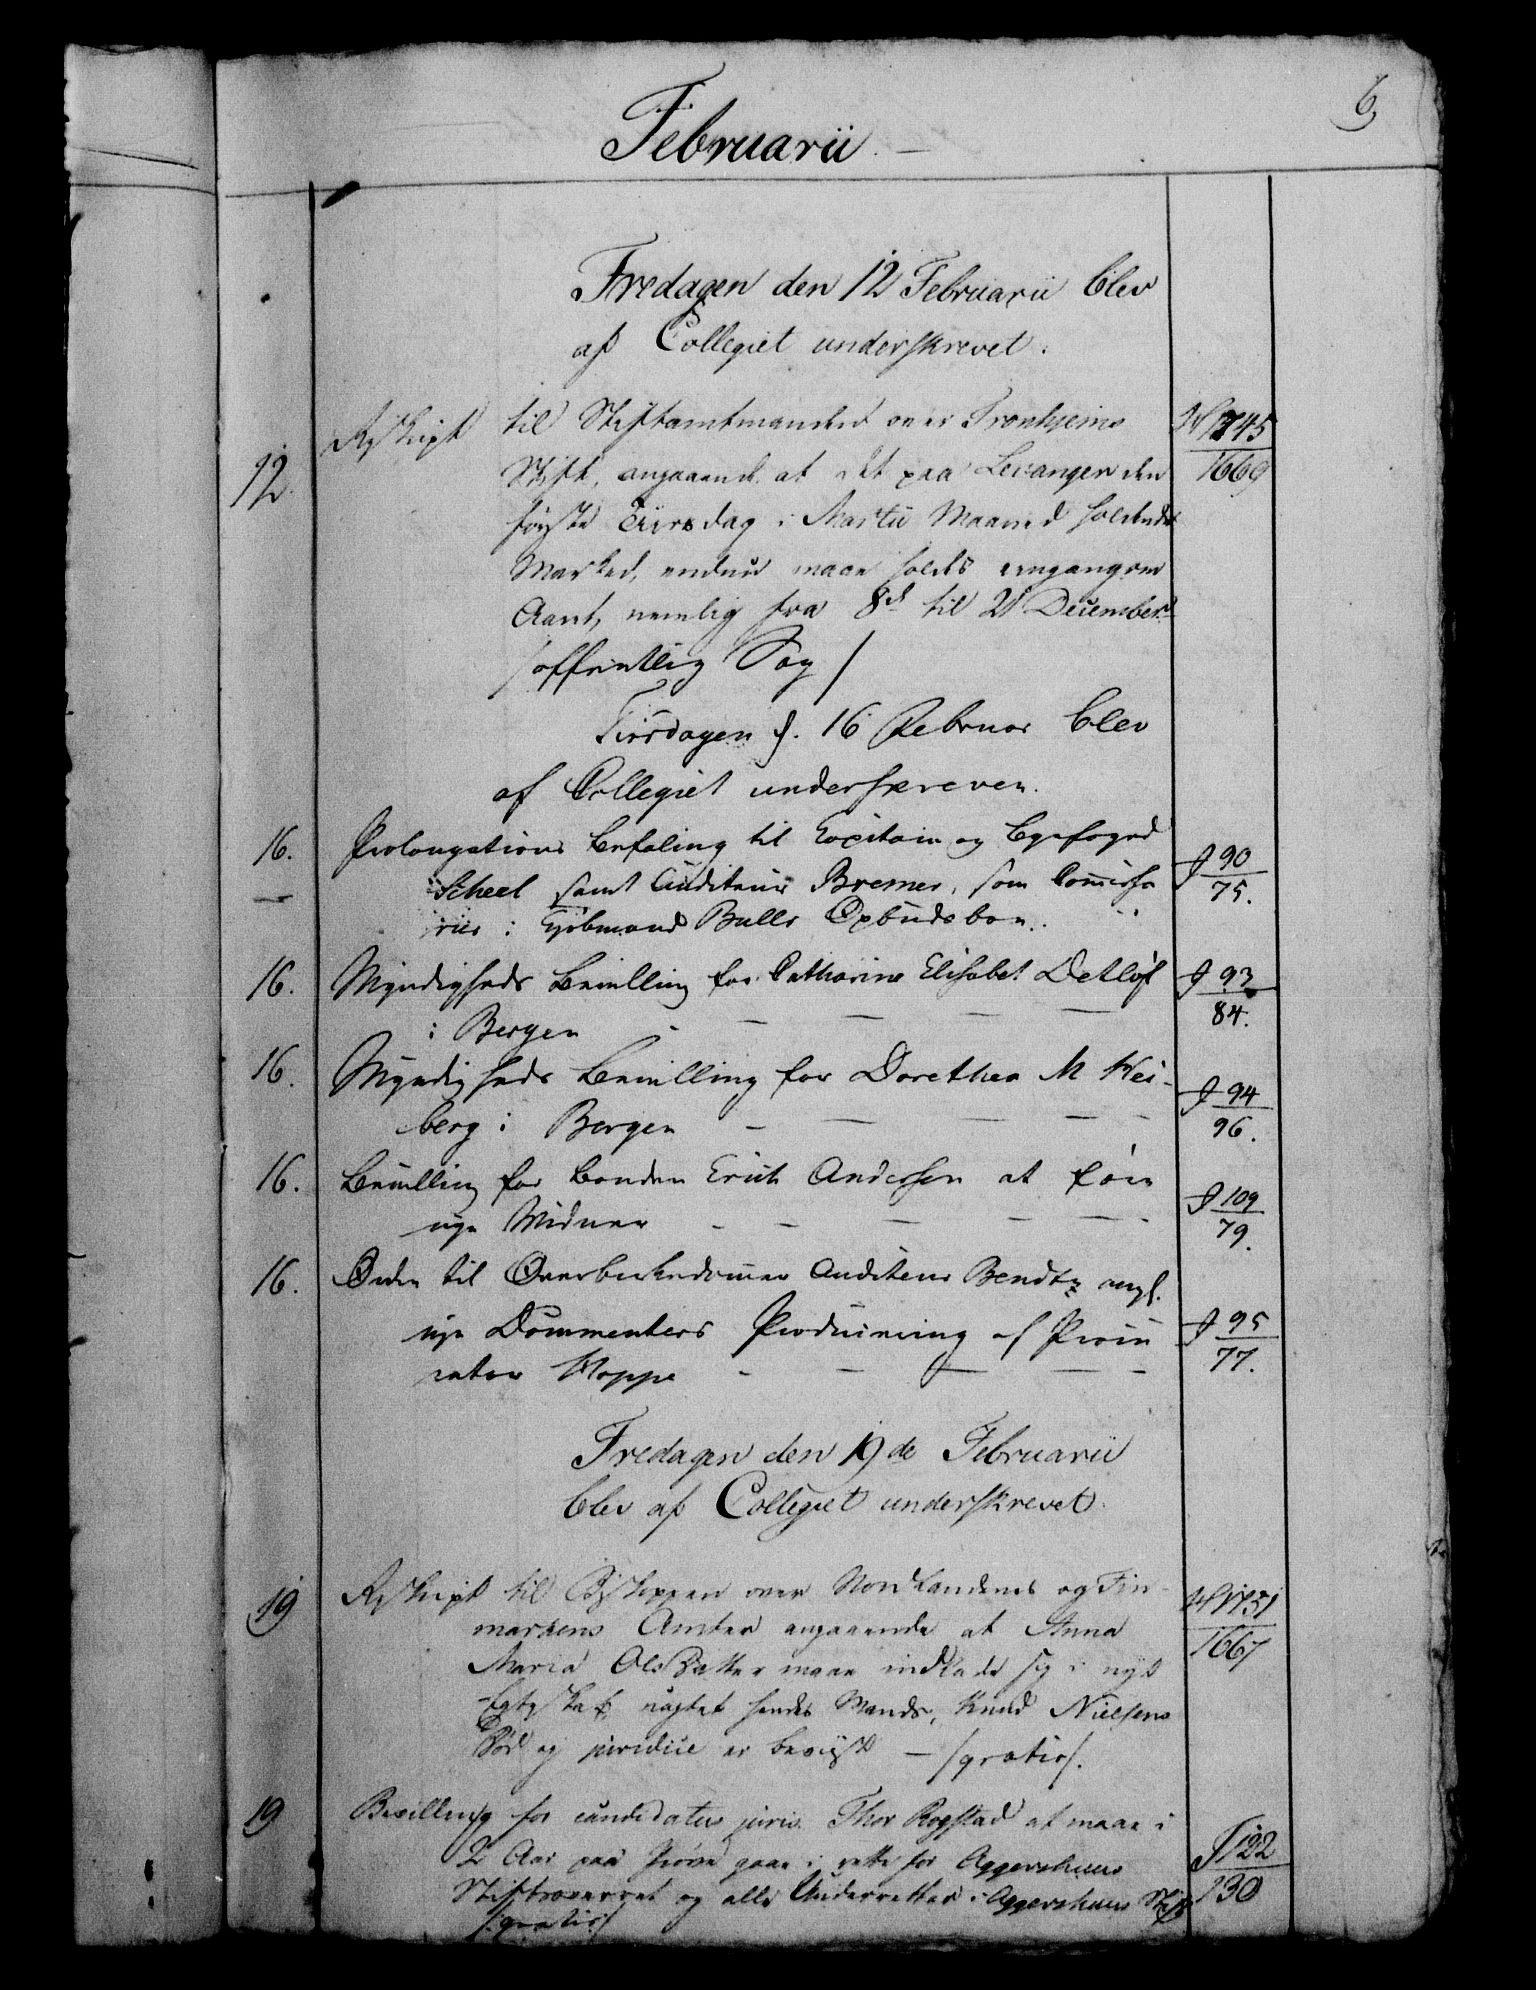 6
Februarii
Fredagen den 12 Februarii blev
af Collegiet underskrevet.
12. Rescript til Stiftamtmanden over Tronhjems W 1745/1669
Stift, angaaende at det paa Levanger den
første Tiirsdag i Martii Maaned holdende
Marked, endnu maae holdes eengang om
Aaret, nemlig fra 8d til 21 December
/ offentlig Sag /
Tiirsdagen d. 16 Februar blev
af Collegiet underskreven.
16. Prolongations Befaling til Capitain og Byefoged J 90/75.
Scheel samt Auditeur Bremer, som Comissa
rier i Kjøbmand Bulls Opbudsboe.
16. Myndigheds Bevilling for Catharine Elisabet Detløf J 93/84.
i Bergen
16. Myndigheds Bevilling for Dorethea M Hei- J 94/96.
berg i Bergen
16. Bevilling for Bonden Erich Andersen at føre J 109/79.
nye Widner
16. Ordre til Overbirkedommer Auditeur Bendtz angl.
nye Documenters Producering af Procu J 95/77.
rator Hoppe
Fredagen den 19de Februarii
blev af Collegiet underskrevet.
19 Rescript til Biskoppen over Nordlandenes og Fin- W 1751/1667
markens Amter angaaende at Anna
Maria Olsdatter maae indlade sig i nyt
Egteskab uagtet hendes Mands, Knud Nielsens
Død ej juridice er beviist — / gratis /.
19 Bevilling for candidatus juris Thor Rogstad at maae i J 122/130
2 Aar paa Prøve gaae i rette for Aggershuus
Stiftsoverret og alle Underretter i Aggershuus Stift
/ gratis /